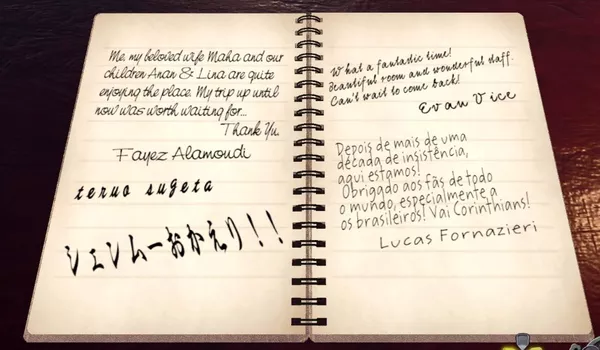 Me, my beloved wife Maha and our
children Anan & Lina are quite
enjoying the place. My trip up until
now was worth waiting for...
Thank Yu.
Fayez Alamoudi
teruo sugeta
シェンムーおかえり!!
What a fantastic time!
Beautiful room and wonderful staff.
Can't wait to come back!
Evan Vice
Depois de mais de uma
década de insistência,
aqui estamos!
Obrigado aos fãs de todo
o mundo, especialmente a
os brasileiros! Vai Corinthians!
Lucas Fornazieri